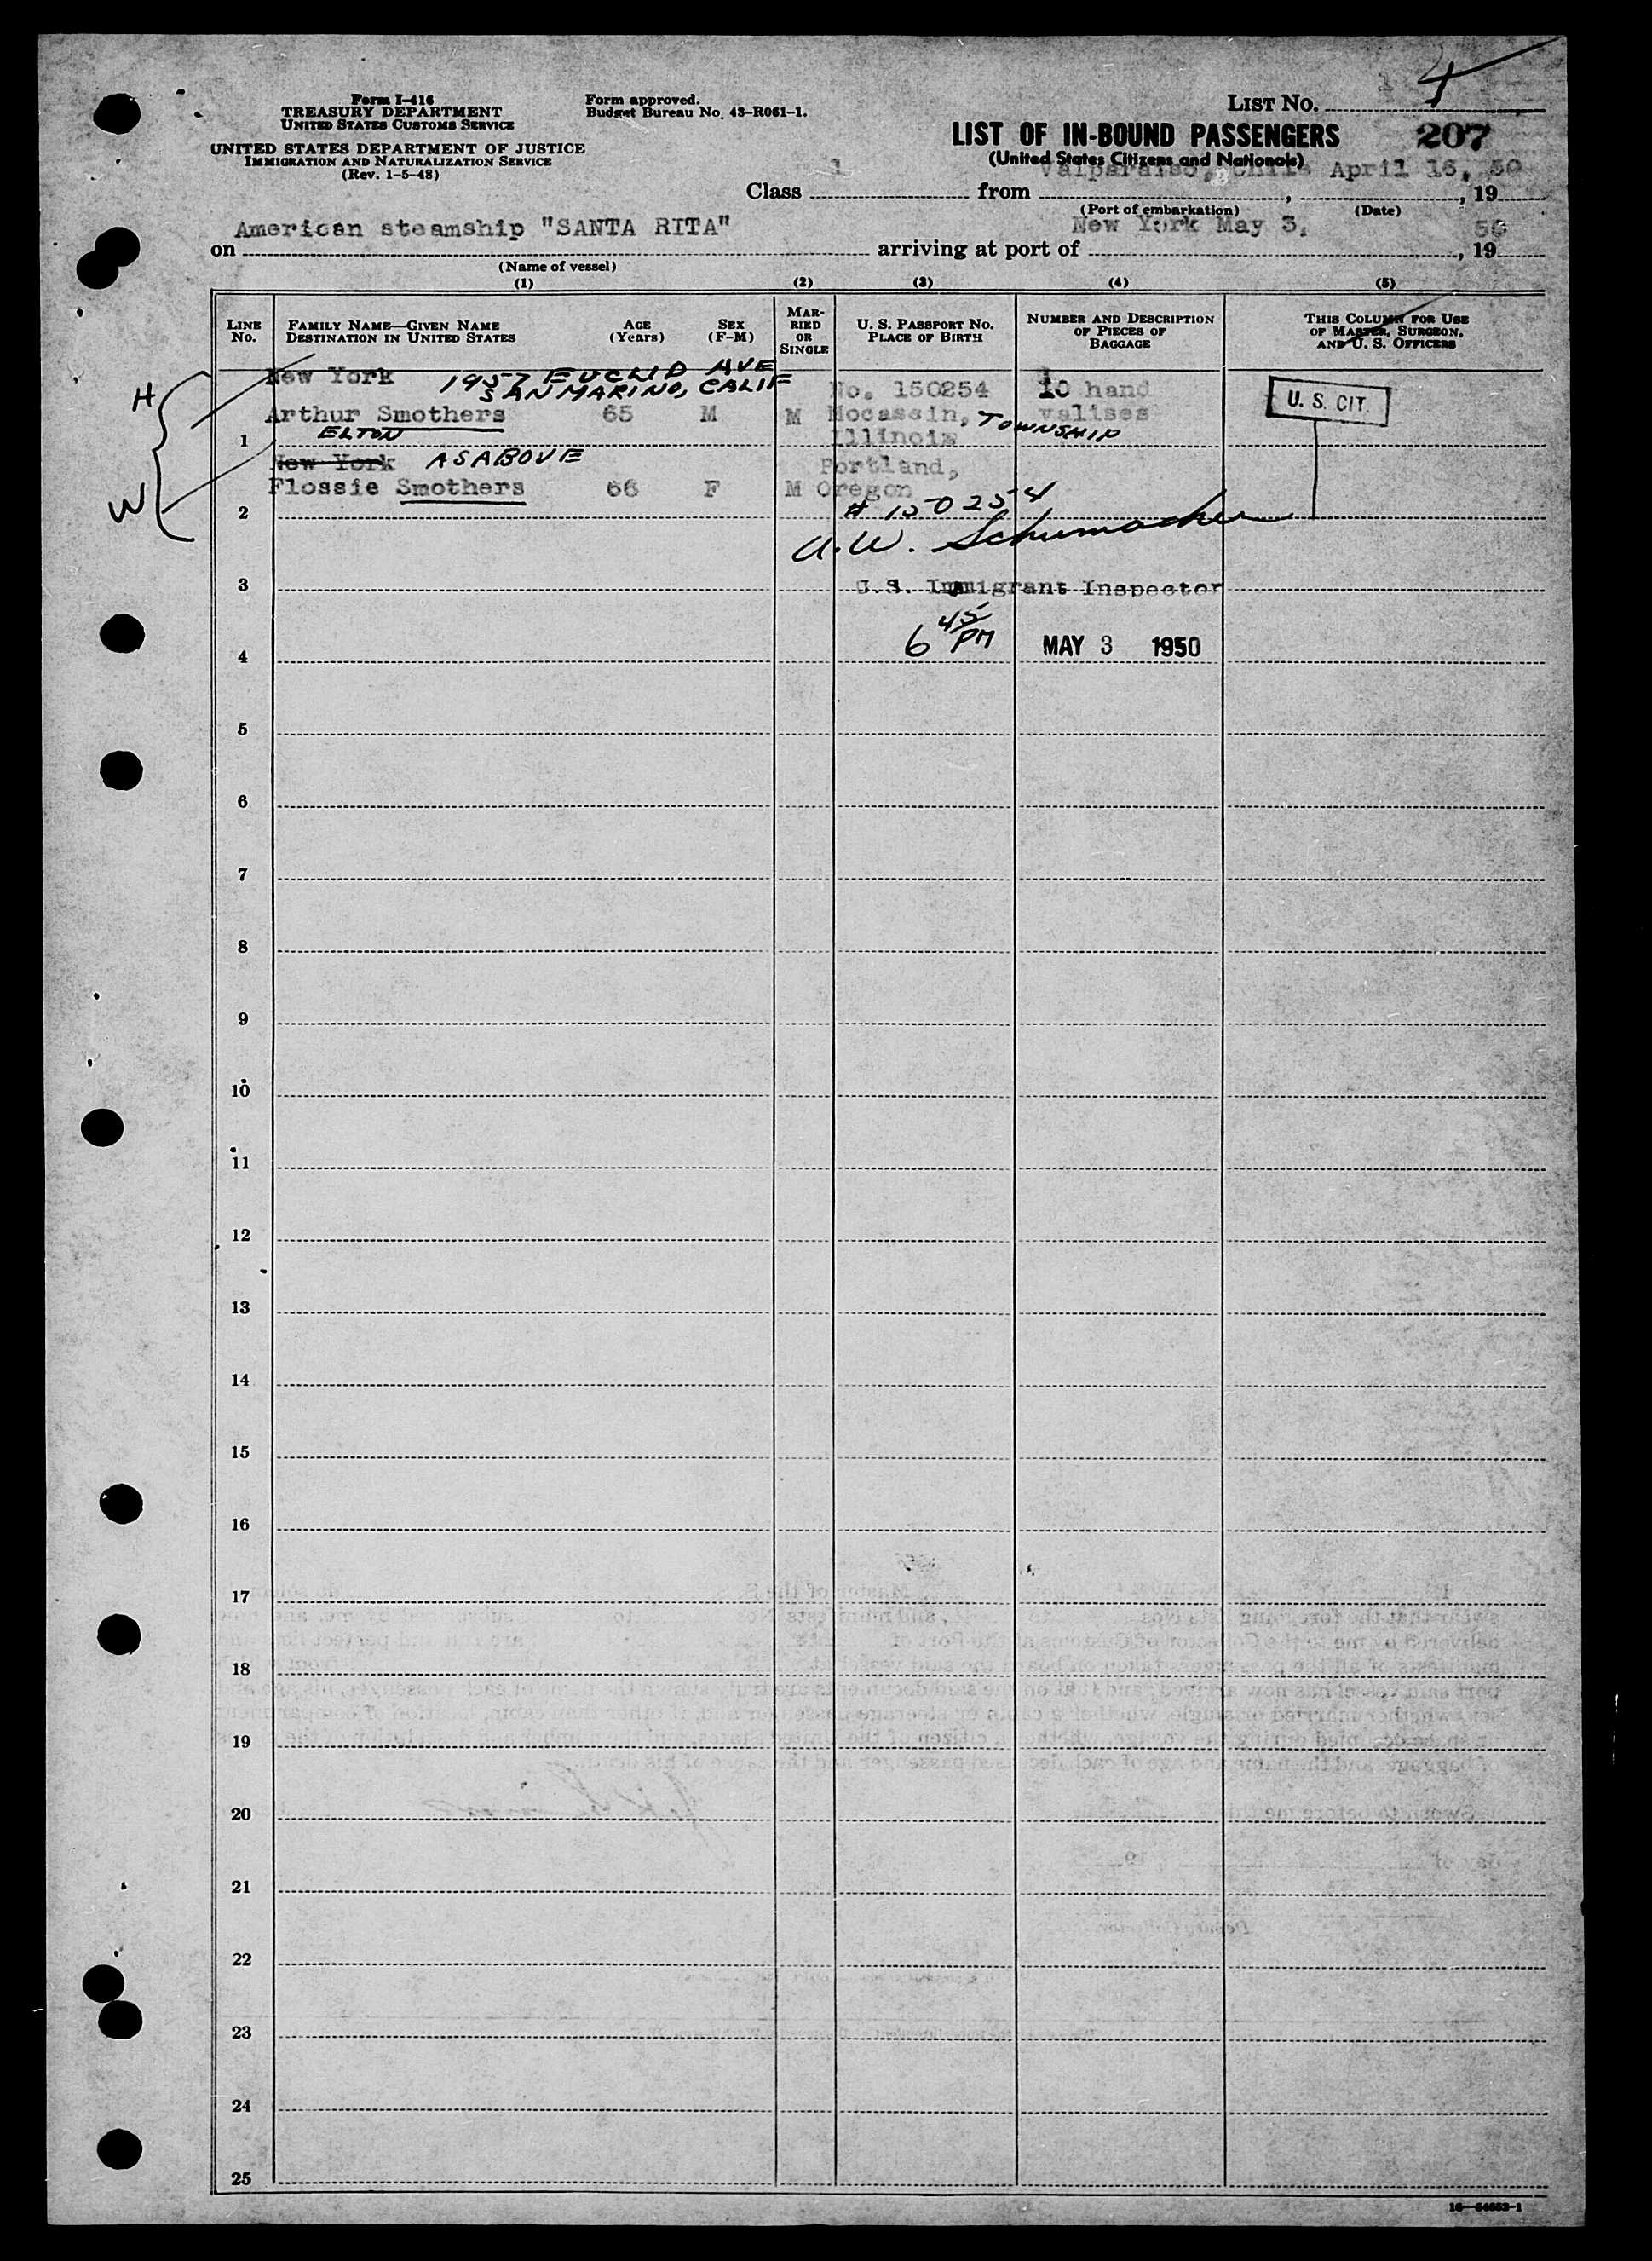 4
LIST No.
Form I-416
TREASURY DEPARTMENT
UNITED STATES CUSTOMS SERVICE
Form approved.
Budget Bureau No. 43-R061-1.
UNITED STATES DEPARTMENT OF JUSTICE
IMMIGRATION AND NATURALIZATION SERVICE
(Rev. 1-5-48)
LIST OF IN-BOUND PASSENGERS 207
(United States Citizens and Nationals)
Class 1 from Valparaiso, April 16, 1950
(Port of embarkation) (Date)
on American steamship "SANTA RITA" arriving at port of New York May 3, 1950
(Name of vessel)
(1) (2) (3) (4) (5)
LINE No.
FAMILY NAME—GIVEN NAME
DESTINATION IN UNITED STATES
AGE
(Years)
SEX
(F-M)
MARRIED OR SINGLE
U. S. PASSPORT No.
PLACE OF BIRTH
NUMBER AND DESCRIPTION
OF PIECES OF
BAGGAGE
THIS COLUMN FOR USE
OF MASTER, SURGEON,
AND U. S. OFFICERS
H
New York 1957 EUCLID AVE
SAN MARINO, CALIF
No. 150254 10 hand
U. S. CIT.
Arthur Smothers 65 M M Mocassin, TOWNSHIP valises
1 ELTON Illinois
New York AS ABOVE Portland,
W Flossie Smothers 66 F M Oregon
2 # 150254
A.W. Schumacher
3 U.S. Immigrant Inspector
4 6 45 PM MAY 3 1950
5
6
7
8
9
10
11
12
13
14
15
16
17
18
19
20
21
22
23
24
25